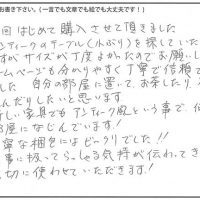 お書き下さい。(一言でも文章でも絵でも大丈夫です!)
回はじめて購入させて頂きました
ンティークのテーブル(小ぶり)を探していた
すがサイズが丁度よかったのでお願いし
ームページも分かりやすく丁寧で信頼で
した 自分の部屋に置いて、お茶したり
んだりしたいと思います
新しい家具でも アンティーク風という事で
部屋になじんでいます!
寧な梱包にはビックリでした!!
事に扱ってらっしゃる気持が伝わってき
切に使わせていただきます!